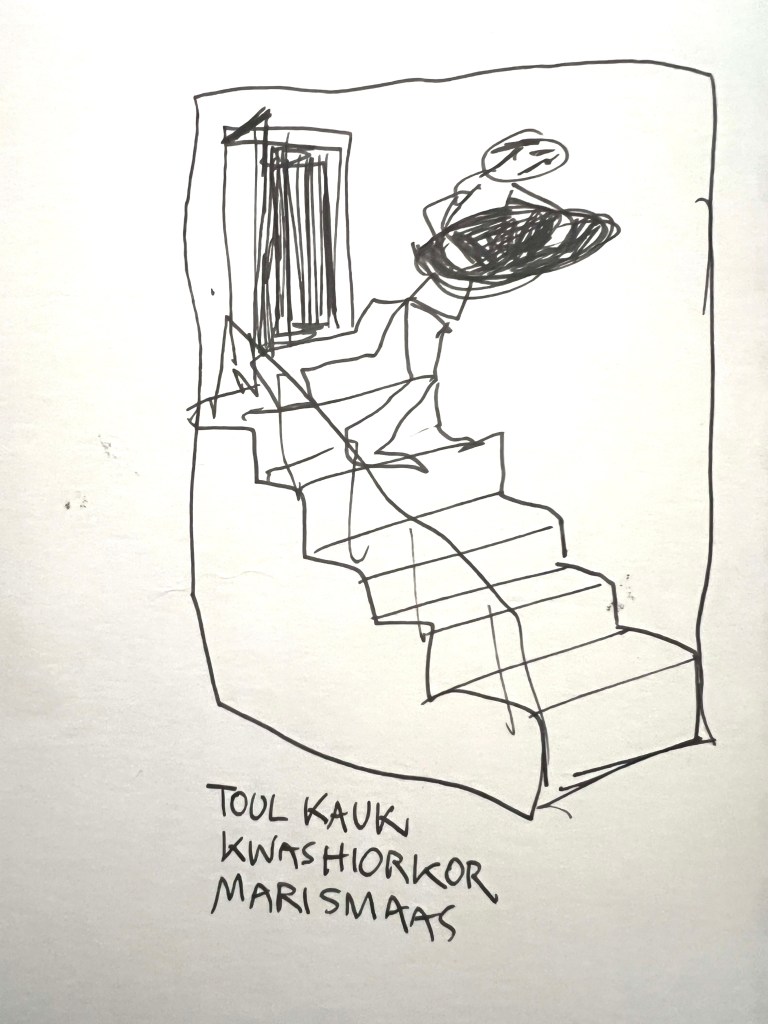 TOUL KAUK
KWASHIORKOR
MARISMAAS